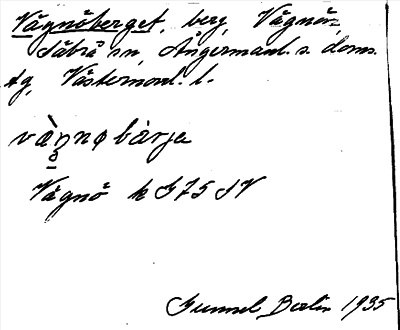 Vågnöberget, berg, Vågnön,
Säbrå sn, Ångermanl. s. doms.
tg, Västernorrl. l.
vàŋnø bàrja
Vågnö k G75 SV
Gunnel Berlin 1935